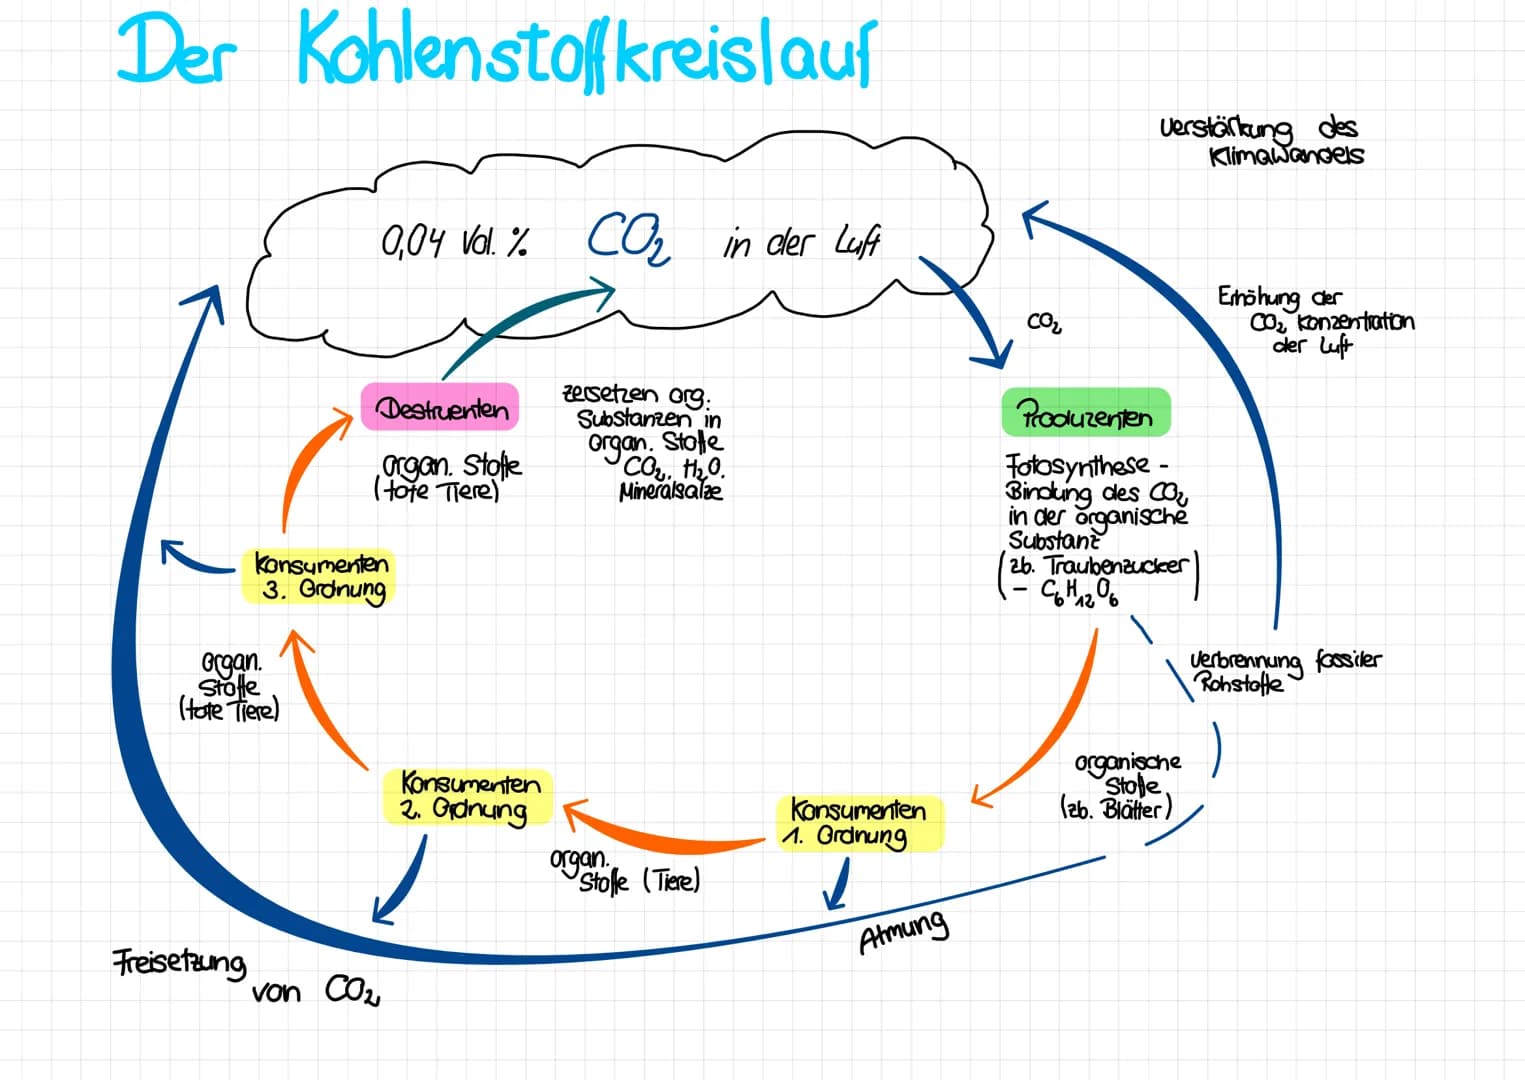 Der Kohlenstoffkreislauf
Verstärkung des
Klimawandels
0,04 Vol. % CO₂ in der Luft
CO₂
Erhöhung der
CO₂ Konzentration
der Luft
Destruenten
organ. Stoffe
(tote Tiere)
zersetzen org.
Substanzen in
organ. Stoffe
CO₂, H₂O,
Mineralsalze
Produzenten
Fotosynthese -
Bindung des CO₂
in der organische
Substanz
(zb. Traubenzucker
- C₆H₁₂O₆)
Konsumenten
3. Ordnung
organ.
Stoffe
(tote Tiere)
Verbrennung fossiler
Rohstoffe
organische
Stoffe
(zb. Blätter)
Konsumenten
2. Ordnung
Konsumenten
1. Ordnung
organ.
Stoffe (Tiere)
Atmung
Freisetzung
von CO₂